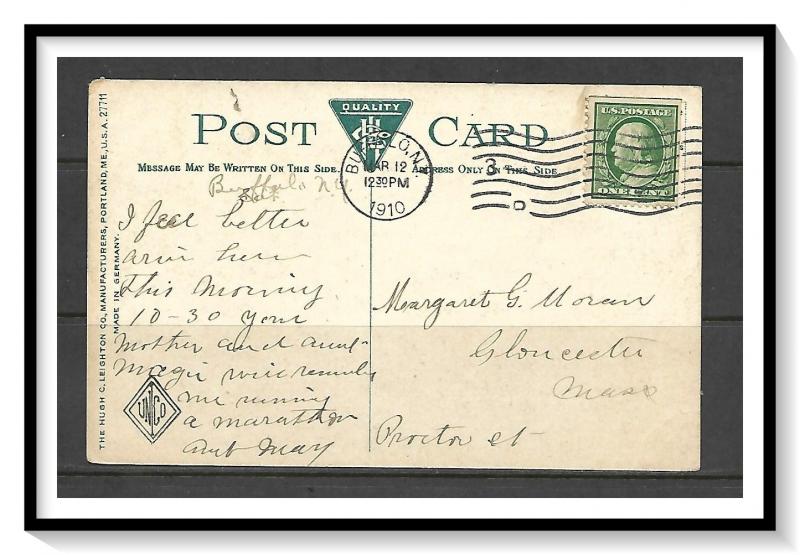 QUALITY
POST CARD
MESSAGE MAY BE WRITTEN ON THIS SIDE. ADDRESS ONLY ON THIS SIDE
BUFFALO, N.Y.
MAR 12
12 30 PM
1910
3
D
U.S. POSTAGE
ONE CENT
THE HUGH C. LEIGHTON CO., MANUFACTURERS, PORTLAND, ME., U.S.A. 27711
MADE IN GERMANY.
Buffalo N.Y.
I feel better
here
This Morning
10-30 your
Mother and aunt
Magie will
me running
a marathon
aunt May
UNCO
Margaret G. Moran
Gloucester
Mass
Proctor st